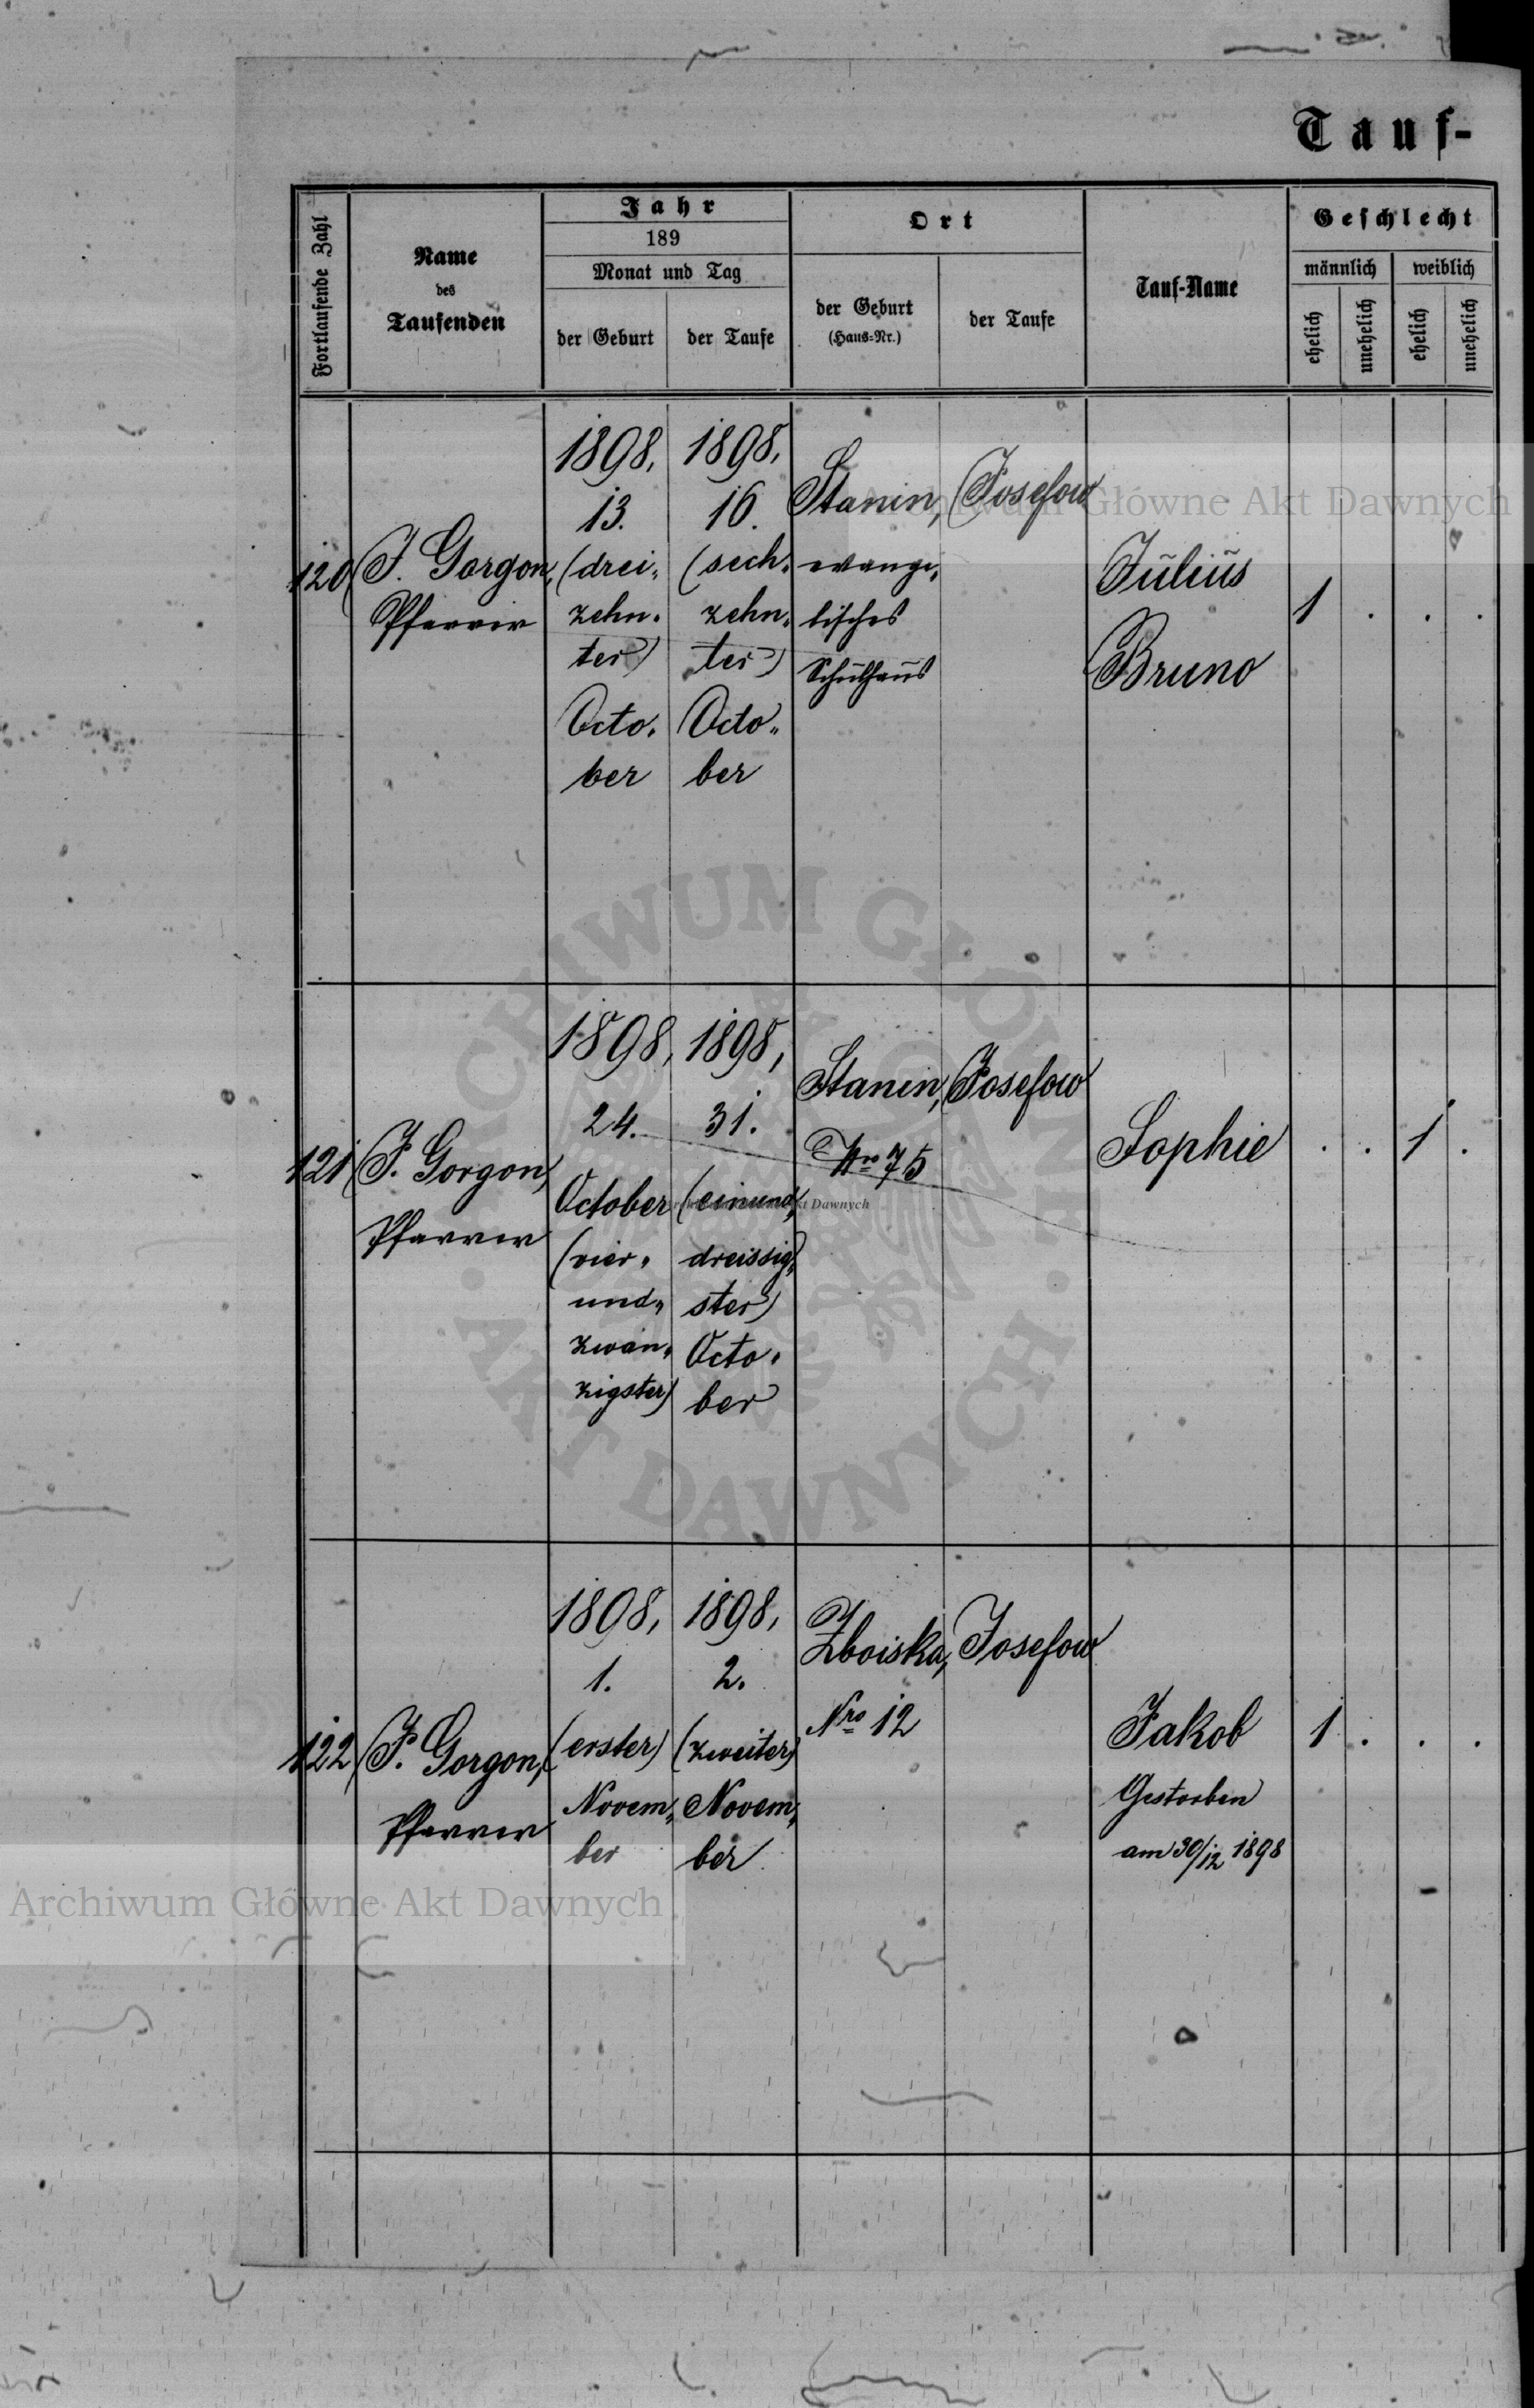 Tauf-
Fortlaufende Zahl
Name
des
Taufenden
Jahr
189
Monat und Tag
der Geburt
der Taufe
Ort
der Geburt
(Haus=Nr.)
der Taufe
Tauf-Name
Geschlecht
männlich
weiblich
ehelich
unehelich
ehelich
unehelich
120
J. Gorgon,
Pfarrer
1898,
13.
(drei„
zehn„
ter)
Octo„
ber
1898,
16.
(sech„
zehn„
ter)
Octo„
ber
Stanin,
evange„
lisches
Schulhaus
Josefow
Julius
Bruno
1 . . .
121
J. Gorgon,
Pfarrer
1898,
24.
October
(vier„
und„
zwan„
zigster)
1898,
31.
(einund„
dreissig„
ster)
Octo„
ber
Stanin,
Nro 75
Josefow
Sophie
. . 1 .
122
J. Gorgon,
Pfarrer
1898,
1.
(erster)
Novem„
ber
1898,
2.
(zweiter)
Novem„
ber
Zboiska,
Nro 12
Josefow
Jakob
Gestorben
am 30/12 1898
1 . . .
Archiwum Główne Akt Dawnych
Archiwum Główne Akt Dawnych
ARCHIWUM GŁÓWNE
AKT DAWNYCH